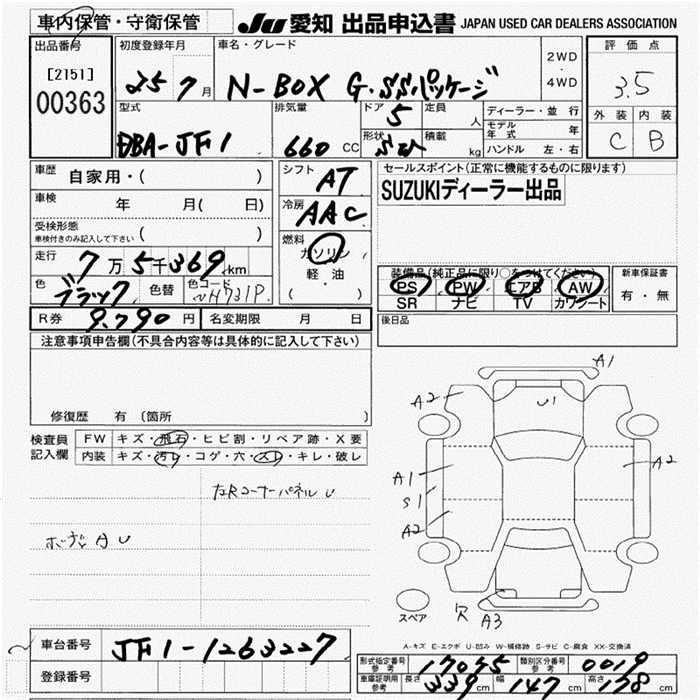 車内保管・守衛保管
JU 愛知 出品申込書 JAPAN USED CAR DEALERS ASSOCIATION
出品番号 [2151] 00363
初度登録年月 25 7月
車名・グレード N-BOX G・SSパッケージ
2WD・4WD
評価点 3.5
外装 内装
C B
型式 DBA-JF1
排気量 660 CC
ドア 5
形状
定員 人
積載 kg
ディーラー・並行
モデル年式 年
ハンドル 左・右
車歴 自家用・( )
車検 年 月( 日)
受検形態 車検付きのみ記入して下さい ( )
走行 7万5千369km
色 ブラック 色替 色コード NH731P
シフト AT
冷房 AAC
燃料 ガソリン 軽・油 ( ・ )
セールスポイント(正常に機能するものに限ります)
SUZUKIディーラー出品
装備品(純正品に限り○をつけてください)
PS PW エアB AW
SR ナビ TV カワシート
新車保証書 有・無
R券 9.790円 名変期限 月 日
後日品
注意事項申告欄(不具合内容等は具体的に記入して下さい)
修復歴 有 (箇所 )
検査員記入欄
FW キズ・飛石・ヒビ割・リペア跡・X要
内装 キズ・汚レ・コゲ・穴・スレ・キレ・破レ
左Rコーナーパネル U
ボデー A U
A1
A2
U1
A1
S1
A2
A2
スペア
欠 A3
A-キズ E-エクボ U-凹み W-補修跡 S-サビ C-腐食 XX-交換済
車台番号 JF1-1263227
登録番号
形式指定番号 参考 17045 類別区分番号 参考 0019
車庫証明用 参考 長さ 339cm 幅 147cm 高さ 178cm